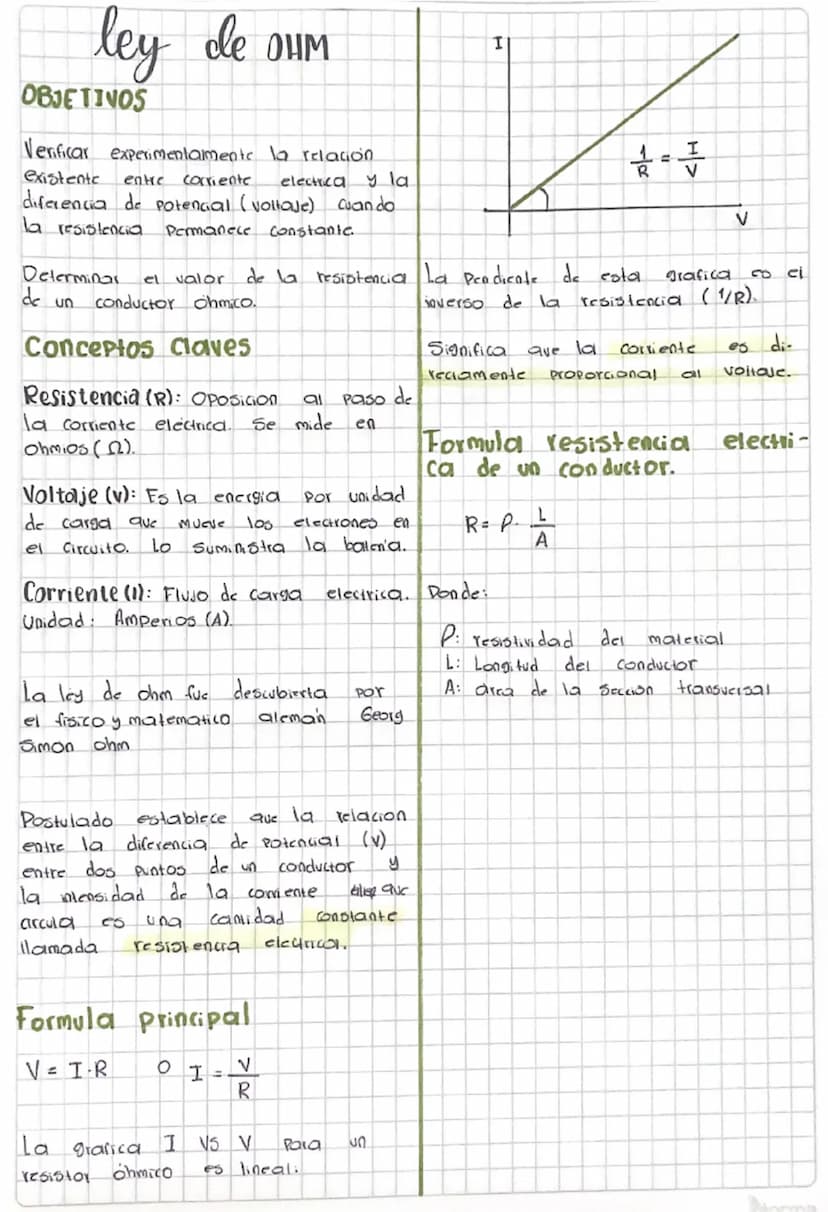 ley de OHM
OBJETIVOS
Verificar experimentalmente la relación
existente entre corriente electrica y la
diferencia de potencial (voltaje) cuando
la resistencia permanece constante.
Determinar el valor de la resistencia
de un conductor óhmico.
Conceptos Claves
Resistencia (R): Oposicion al paso de
la corriente eléctrica. Se mide en
ohmios (Ω).
Voltaje (V): Es la energia por unidad
de carga que mueve los electrones en
el circuito. Lo suministra la bateria.
Corriente (I): Flujo de carga electrica.
Unidad: Amperios (A).
La ley de ohm fue descubierta por
el fisico y matematico alemán Georg
Simon ohm
Postulado establece que la relacion
entre la diferencia de potencial (V)
entre dos puntos de un conductor y
la intensidad de la corriente que
circula es una cantidad constante
llamada resistencia electrica.
Formula principal
V = I·R o I = V/R
La grafica I VS V para un
resistor óhmico es lineal.
I
1/R = I/V
V
La pendiente de esta grafica es el
inverso de la resistencia (1/R).
Significa que la corriente es di-
rectamente proporcional al voltaje.
Formula resistencia electri-
ca de un conductor.
R = ρ· L/A
Donde:
ρ: resistividad del material
L: Longitud del conductor
A: area de la sección transversal